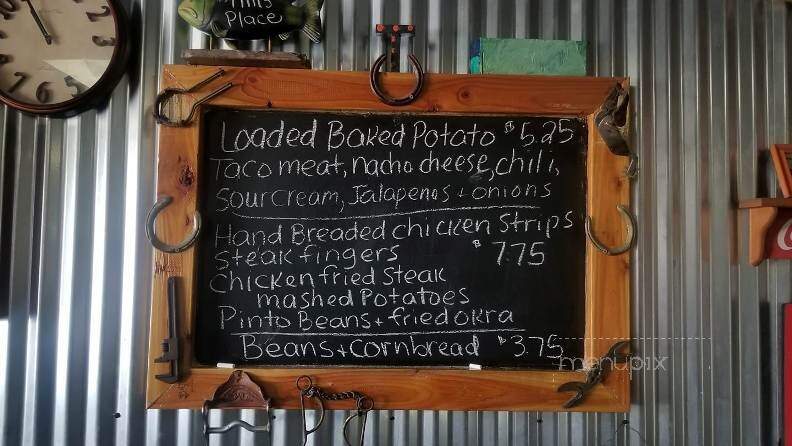 Place
Loaded Baked Potato $5.25
Taco meat, nacho cheese, chili,
sour cream, Jalapenos + onions
Hand Breaded chicken Strips
steak fingers $7.75
Chicken fried Steak
mashed Potatoes
Pinto Beans + fried okra
Beans + cornbread $3.75
menupix